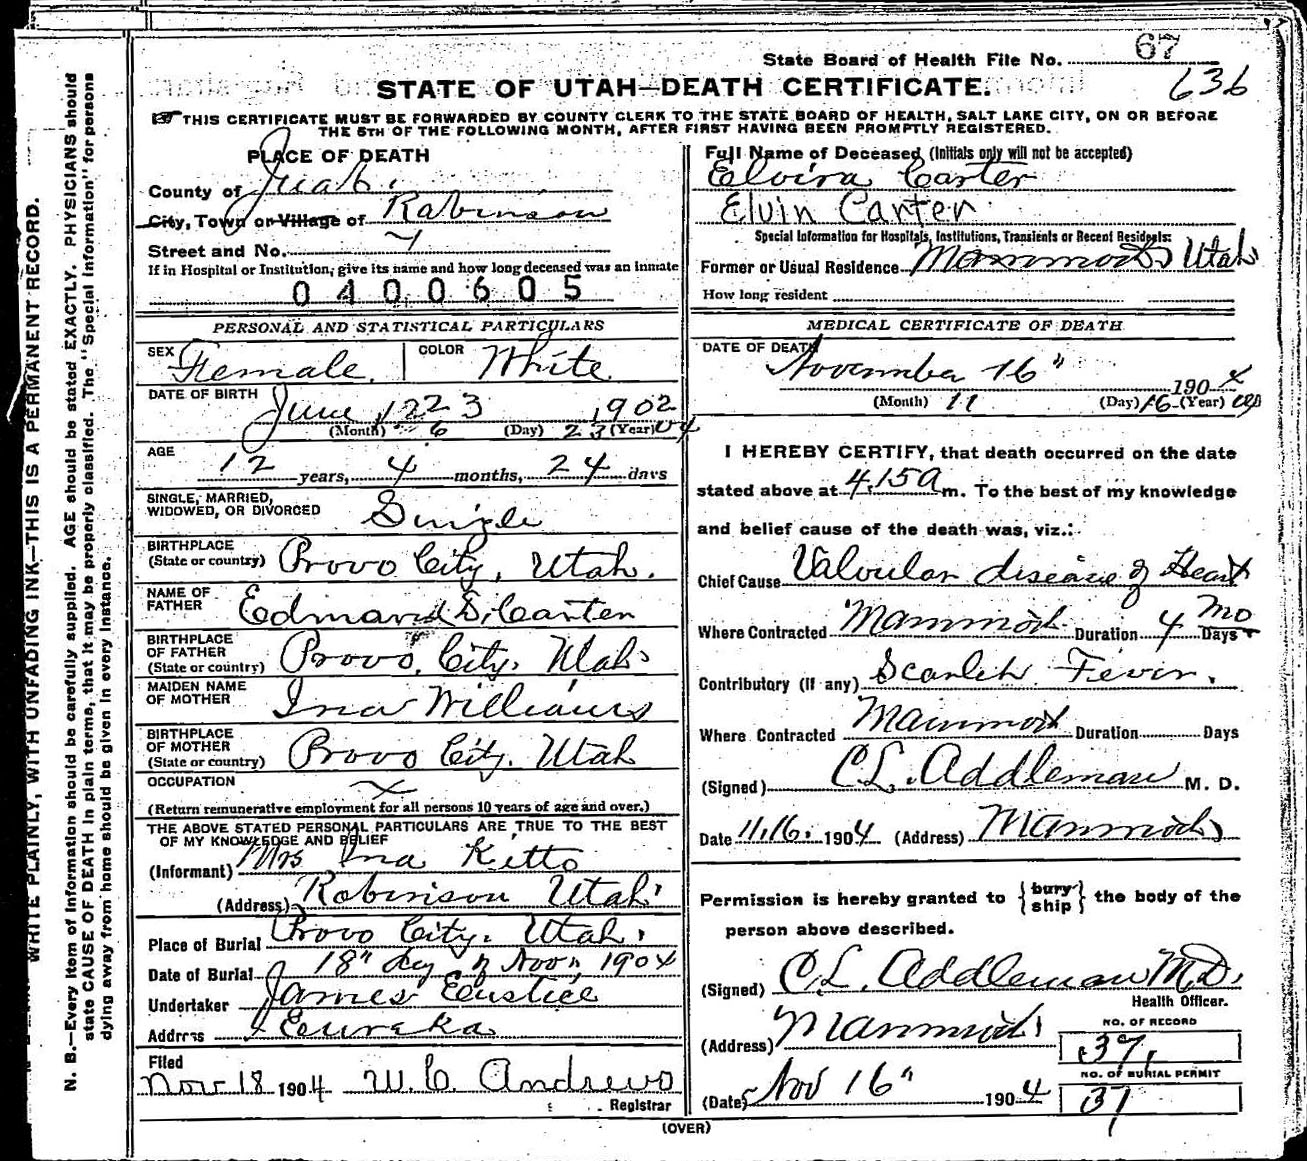 State Board of Health File No. 67
636
STATE OF UTAH—DEATH CERTIFICATE.
THIS CERTIFICATE MUST BE FORWARDED BY COUNTY CLERK TO THE STATE BOARD OF HEALTH, SALT LAKE CITY, ON OR BEFORE
THE 5TH OF THE FOLLOWING MONTH, AFTER FIRST HAVING BEEN PROMPTLY REGISTERED.
PLACE OF DEATH
County of Juab.
City, Town or Village of Robinson
Street and No.
If in Hospital or Institution, give its name and how long deceased was an inmate
0400605
PERSONAL AND STATISTICAL PARTICULARS
SEX Female. COLOR White
DATE OF BIRTH June 23 1902
(Month) 6 (Day) 23 (Year)
AGE 12 years, 4 months, 24 days
SINGLE, MARRIED,
WIDOWED, OR DIVORCED Single
BIRTHPLACE
(State or country) Provo City, Utah.
NAME OF
FATHER Edmund S. Carter
BIRTHPLACE
OF FATHER
(State or country) Provo City. Utah
MAIDEN NAME
OF MOTHER Ina Williams
BIRTHPLACE
OF MOTHER
(State or country) Provo City. Utah
OCCUPATION
(Return remunerative employment for all persons 10 years of age and over.)
THE ABOVE STATED PERSONAL PARTICULARS ARE TRUE TO THE BEST
OF MY KNOWLEDGE AND BELIEF
(Informant) Mrs Ina Ketto
(Address) Robinson Utah
Place of Burial Provo City. Utah.
Date of Burial 18" day of Nov, 1904
Undertaker James Eustice
Address Eureka
Filed
Nov 18 1904 W. C. Andrews
Registrar
Full Name of Deceased (Initials only will not be accepted)
Elvira Carter
Elvin Carter
Special Information for Hospitals, Institutions, Transients or Recent Residents:
Former or Usual Residence Mammoth Utah
How long resident
MEDICAL CERTIFICATE OF DEATH
DATE OF DEATH
November 16" 1904
(Month) 11 (Day) 16 (Year) 04
I HEREBY CERTIFY, that death occurred on the date
stated above at 4.15 a m. To the best of my knowledge
and belief cause of the death was, viz.:
Chief Cause Valvular disease of Heart
Where Contracted Mammoth Duration 4 Mo Days
Contributory (if any) Scarlet Fever.
Where Contracted Mammoth Duration Days
(Signed) C L. Addleman M. D.
Date 11.16. 1904 (Address) Mammoth
Permission is hereby granted to {bury ship} the body of the
person above described.
(Signed) C. L. Addleman M.D.
Health Officer.
(Address) Mammoth
NO. OF RECORD
37
NO. OF BURIAL PERMIT
37
(Date) Nov 16" 1904
(OVER)
WRITE PLAINLY, WITH UNFADING INK—THIS IS A PERMANENT RECORD.
N. B.—Every item of information should be carefully supplied. AGE should be stated EXACTLY. PHYSICIANS should
state CAUSE OF DEATH in plain terms, that it may be properly classified. The "Special Information" for persons
dying away from home should be given in every instance.